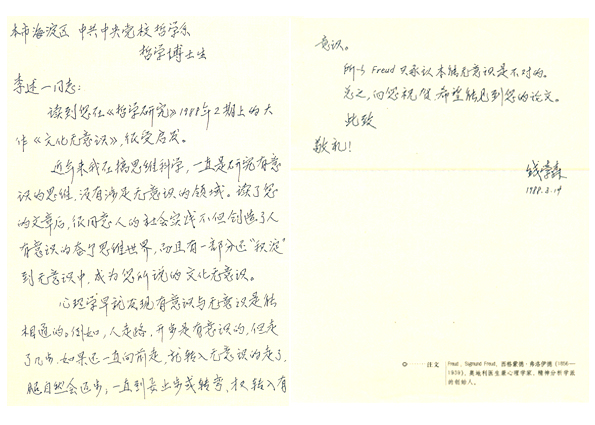 本市海淀区 中共中央党校哲学系
哲学博士生
李述一同志：
读到您在《哲学研究》1988年2期上的大
作《文化无意识》，很受启发。
近年来我在搞思维科学，一直是研究有意
识的思维，没有涉足无意识的领域。读了您
的文章后，很同意人的社会实践不但创造了人
有意识的奋了思维世界，而且有一部分还“积淀”
到无意识中，成为您所说的文化无意识。
心理学早就发现有意识与无意识是能
相通的。例如，人走路，开步是有意识的，但走
了几步，如果还一直向前走，就转入无意识的走了，
腿自然会迈步；一直到要上步或转弯，才又转入有
意识。
所以 Freud 只承认本能无意识是不对的。
总之，向您祝贺，希望能见到您的论文。
此致
敬礼！
钱学森
1988.3.14
注文
Freud, Sigmund Freud, 西格蒙德·弗洛伊德（1856—
1939），奥地利医生兼心理学家、精神分析学派
的创始人。